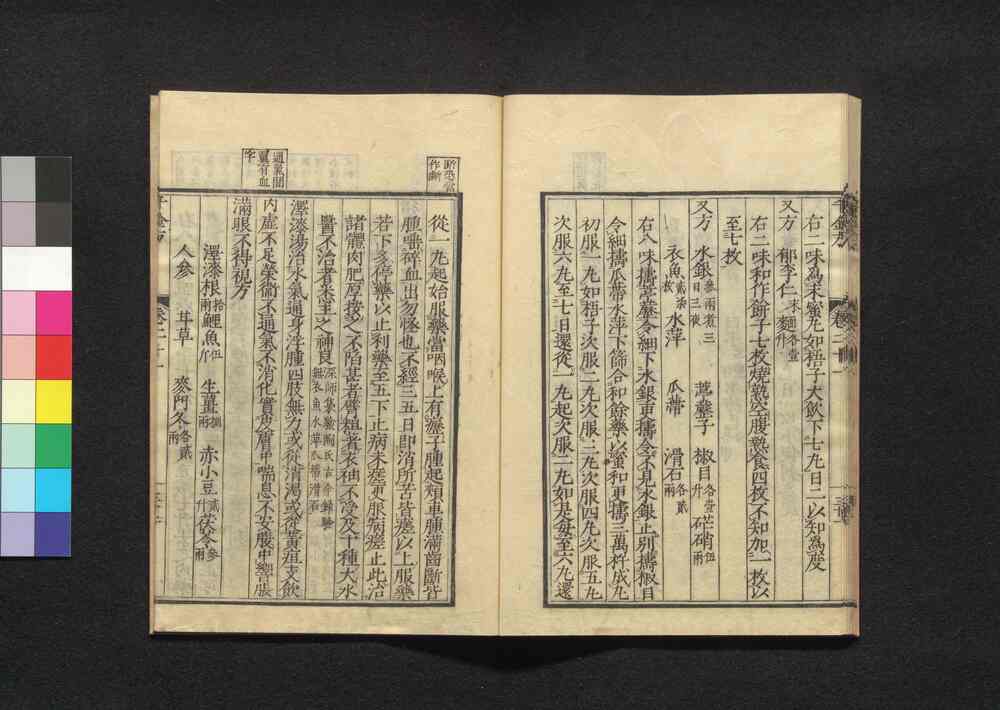 右二味為末蜜丸如梧子大飲下七丸日二以知為度
又方　郁李仁末　麵各壹升
右二味和作餅子七枚燒熟空腹熱食四枚不知加一枚以
至七枚
又方　水銀叁兩煮三日三夜　葶藶子　椒目各壹升　芒硝伍兩
衣魚貳柒枚　水萍　瓜蔕　滑石各貳兩
右八味擣葶藶令細下水銀更擣令不見水銀止別擣椒目
令細擣瓜蔕水萍下篩合和餘藥以蜜和更擣三萬杵成丸
初服一丸如梧子次服二丸次服三丸次服四丸次服五丸
次服六丸至七日還從一丸起次服二丸如是每至六丸還
千金方　卷二十一
斷恐當
作齗
從一丸起始服藥當咽喉上有瀝子腫起頰車腫滿齒斷皆
腫嚼碎血出勿怪也不經三五日即消所苦皆瘥以上服藥
若下多停藥以止利藥至五下止病未瘥更服病瘥止此治
諸體肉肥厚按之不陷甚者臂粗著衣袖不受及十種大水
醫不治者悉主之神良深師集驗陶氏古今錄驗
無衣魚水萍瓜蔕滑石
通氣間
翼有血
字
澤漆湯治水氣通身浮腫四肢無力或從消渴或從黃疸支飲
內虛不足榮衞不通氣不消化實皮膚中喘息不安腹中響脹
滿眼不得視方
澤漆根拾兩　鯉魚伍斤　生薑捌兩　赤小豆貳升　茯苓叁兩
人參　甘草　麥門冬各貳兩
千金方　卷二十一